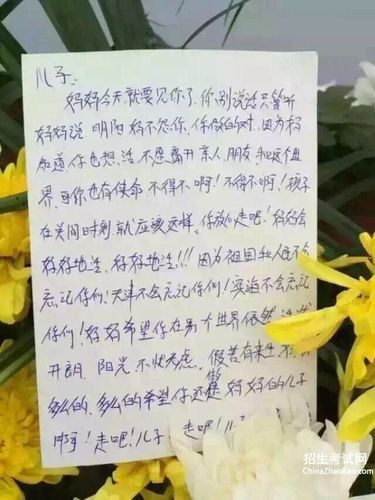 儿子：
妈妈今天就要见你了，你别说话只管听
妈妈说，明阳妈不怨你，你做的对，因为妈
知道，你也想活，不愿离开亲人，朋友和这个世
界，可你也有使命，不得不啊！不得不啊！孩子
在关间时刻，就应该这样，你放心走吧！妈妈会
好好地活，好好地活！！！因为祖国和人民不会
忘记你们！天津不会忘记你们！宾海不会忘记
你们！妈妈希望你在另个世界依然
开朗，阳光，不忧虑，假若有来生
多么的，多么的希望你还是做妈妈的儿子
啊！走吧！儿子，走吧！儿子
招生考试网
ChinaZhaoKao.com